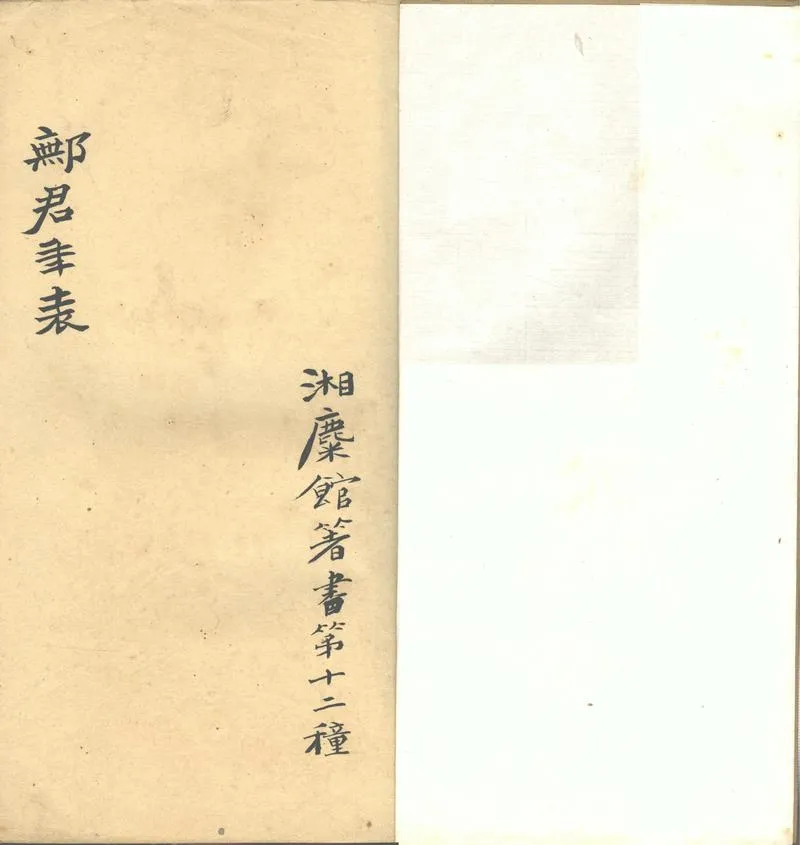 湘麋館箸書第十二種
鄦君年表